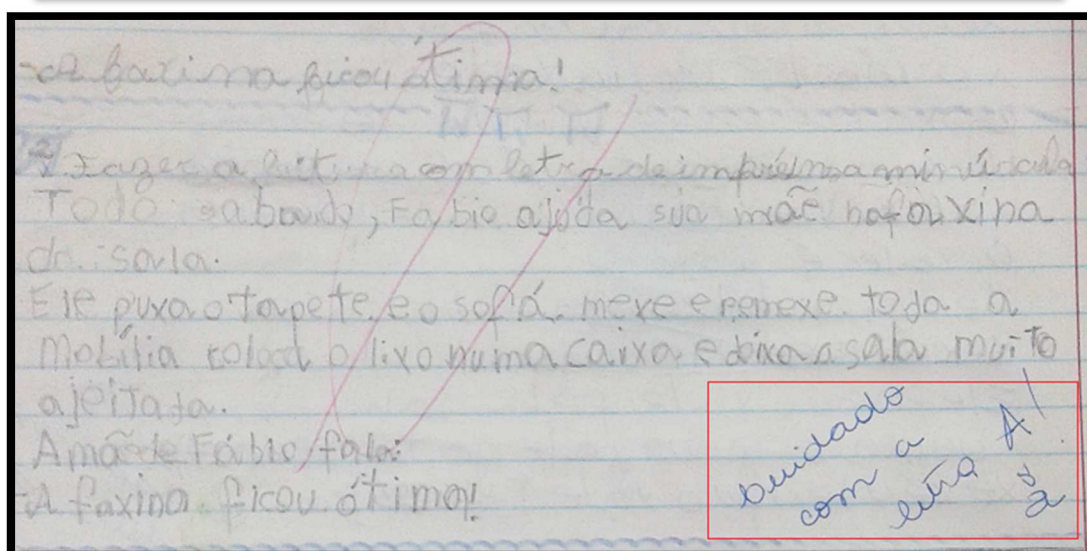 -A faxina ficou ótima!
2) Fazer a leitura com letra de imprensa minúscula
Todo sabado, Fabio ajuda sua mãe na faxina
da sala.
Ele puxa o tapete, e o sofá. mexe e remexe toda a
mobília coloca o lixo numa caixa e deixa a sala muito
ajeitada.
A mãe de Fábio fala:
-A faxina ficou ótima!
Cuidado
com a
letra A!
a